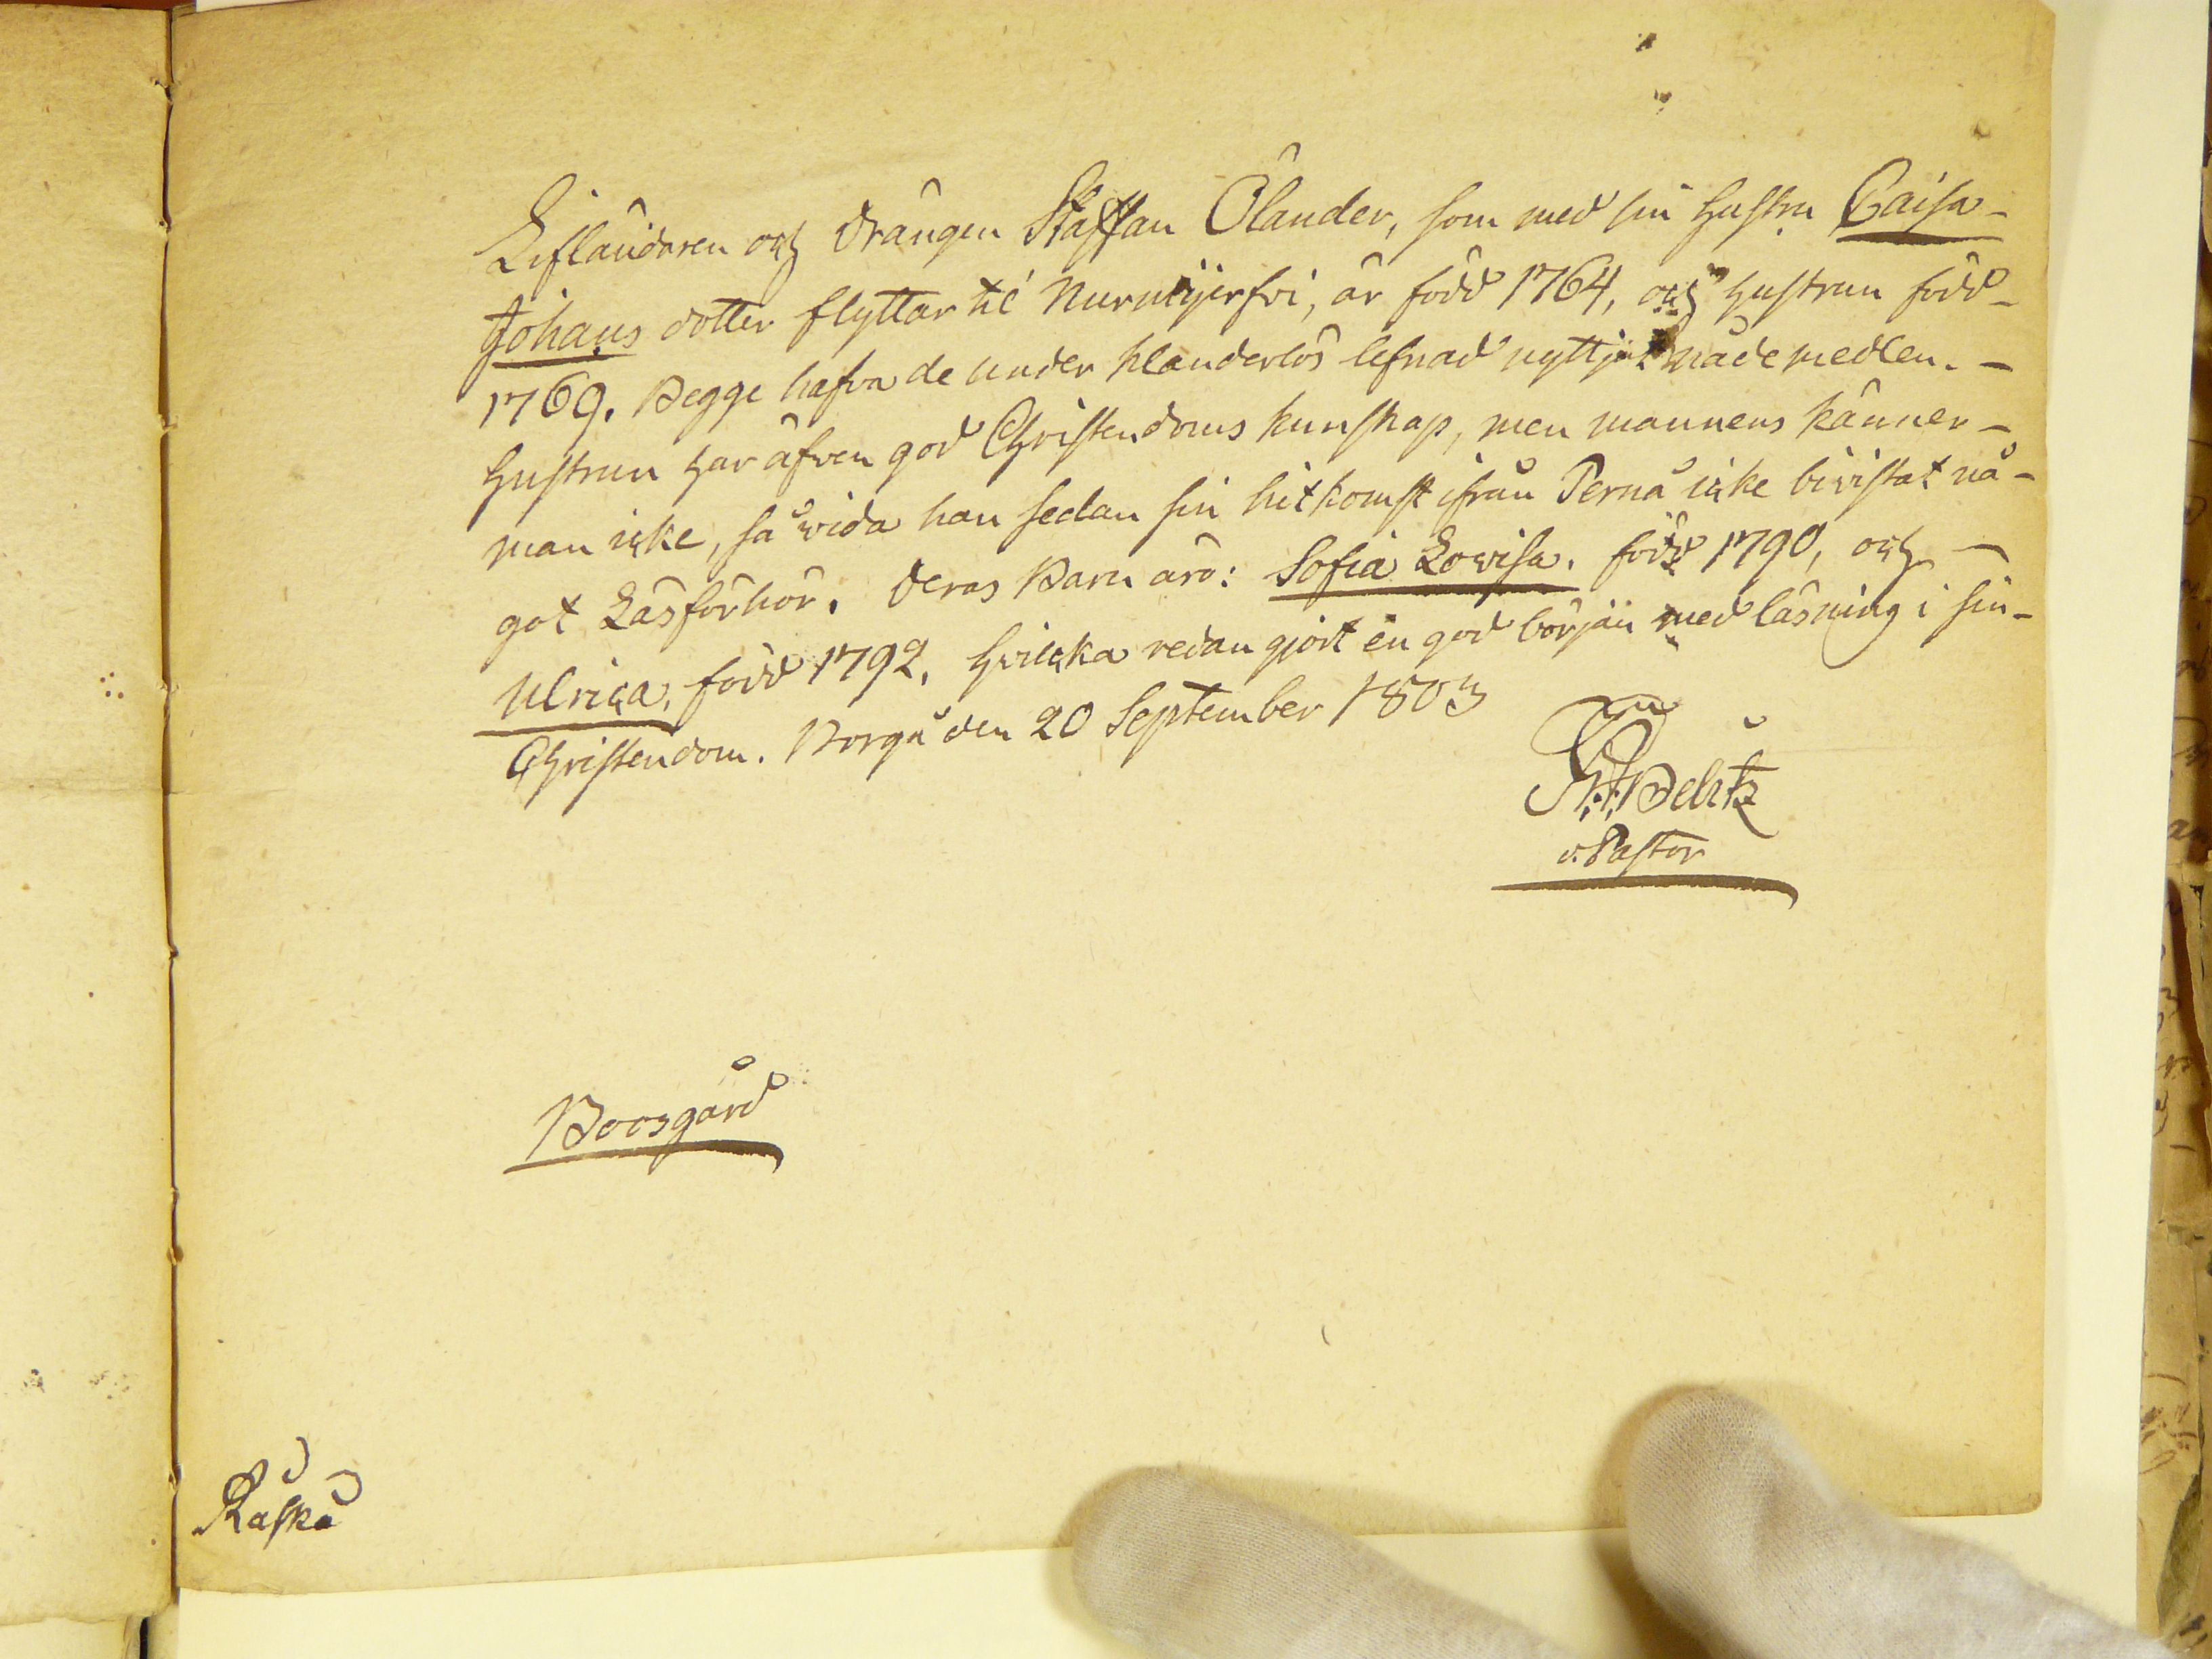 Liflandaren och Drängen Staffan Ölander, som med sin hustru Caisa-
Johans dotter flyttar til Nurmijerfvi, är född 1764, och hustrun född-
1769. Begge hafva de under klanderlös lefnad nyttjat nådemedlen. -
Hustrun har äfven god Christendoms kunskap, men mannens känner-
man icke, så vida han sedan sin hitkomst ifrån Pernå icke bivistat nå-
got Läsförhör. Deras Barn äro: Sofia Lovisa. född 1790, och -
Ulrica, född 1792, hvilcka redan gjort en god början med läsning i sin-
Christendom. Borgå den 20 September 1803
v. Pastor
Boosgård
Råskå